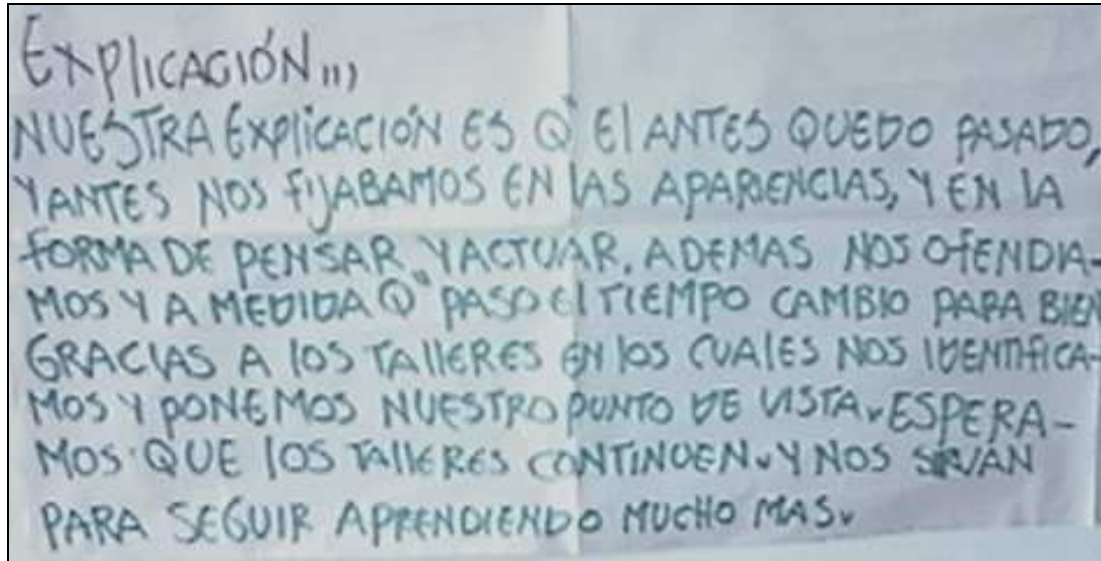 EXPlICACIÓN...,
NUESTRA EXPlICACIÓN ES Q" El ANTES QUEDO PASADO,
Y ANTES NOS FIJABAMOS EN lAS APARIENCIAS, Y EN lA
FORMA DE PENSAR Y ACTUAR. ADEMAS NOS OFENDIA-
MOS Y A MEDIDA Q" PASO El TIEMPO CAMBIO PARA BIEN
GRACIAS A lOS TAllERES EN lOS CUAlES NOS IDENTIFICA-
MOS Y PONEMOS NUESTRO PUNTO DE VISTA. ESPERA-
MOS QUE lOS TAllERES CONTINUEN. Y NOS SIRVAN
PARA SEGUIR APRENDIENDO MUCHO MAS.